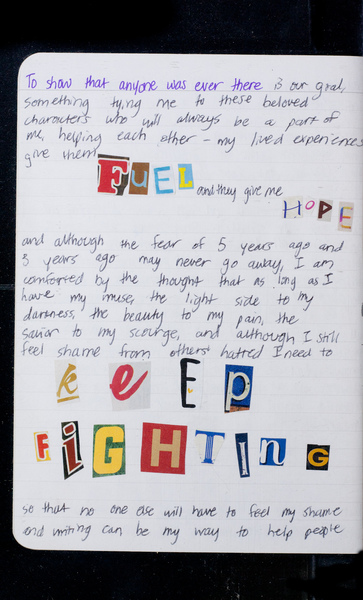 To show that anyone was ever there is our goal,
something tying me to these beloved
characters who will always be a part of
me, helping each other – my lived experiences
give them
FUEL
and they give me
HOPE
and although the fear of 5 years ago and
3 years ago may never go away, I am
comforted by the thought that as long as I
have my muse, the light side to my
darkness, the beauty to my pain, the
savior to my scourge, and although I still
feel shame from others' hatred I need to
keEp
FiGHTING
so that no one else will have to feel my shame
and writing can be my way to help people